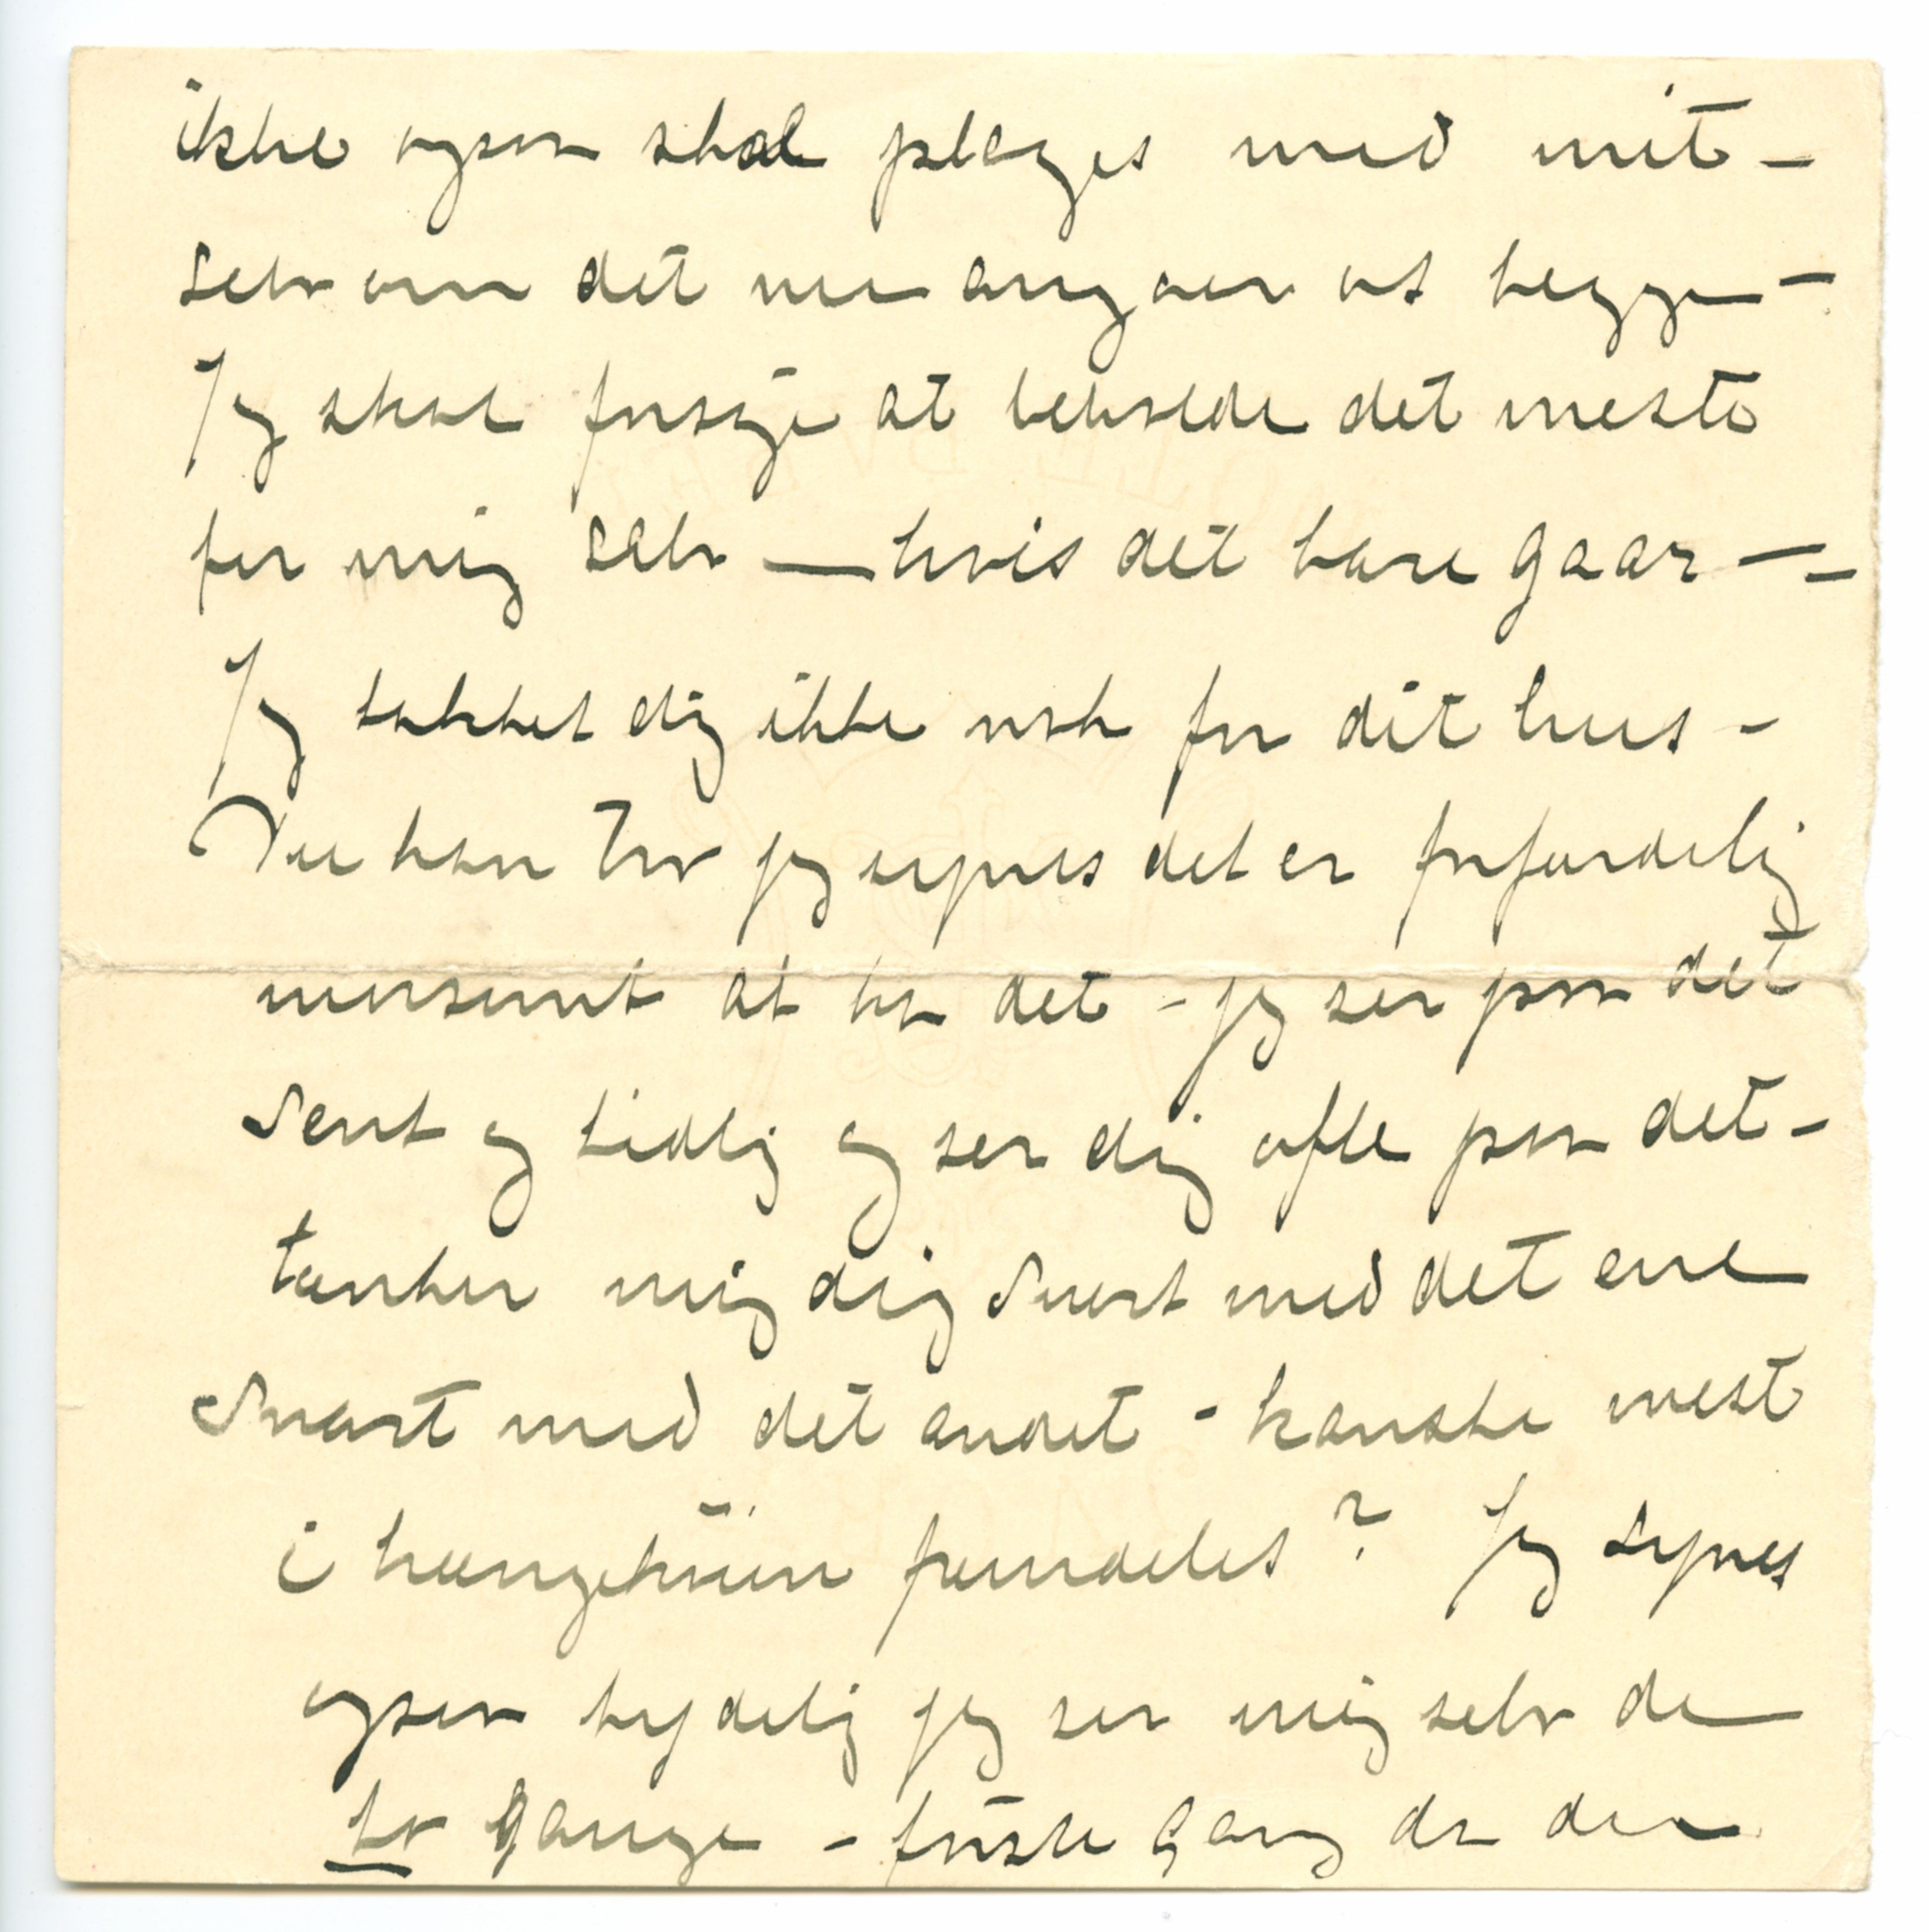 ikke ogsaa skal plages med mit –
selv om det nu angaar os begge –
Jeg skal forsøge at beholde det meste
for mig selv — hvis det bare gaar — –
Jeg takket dig ikke nok for dit hus –
Du kan tro jeg synes det er forfærdelig
morsomt at ha det – jeg ser paa det
sent og tidlig og ser dig ofte paa det –
tænker mig dig snart med det ene
snart med det andet – kanske mest
i hængekøien fremdeles? Jeg synes
ogsaa tydelig jeg ser mig selv de
to gange – første gang da du